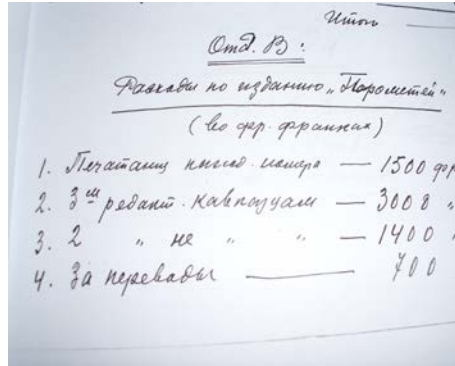 Итого
Отд. В:
Расходы по изданию „Прометей"
(во фр. франках)
1. Печатание номера — 1500 фр
2. 3-м редакт. кавказцам — 3000 „
3. 2 „ не „ „ — 1400 „
4. За переводы — 700